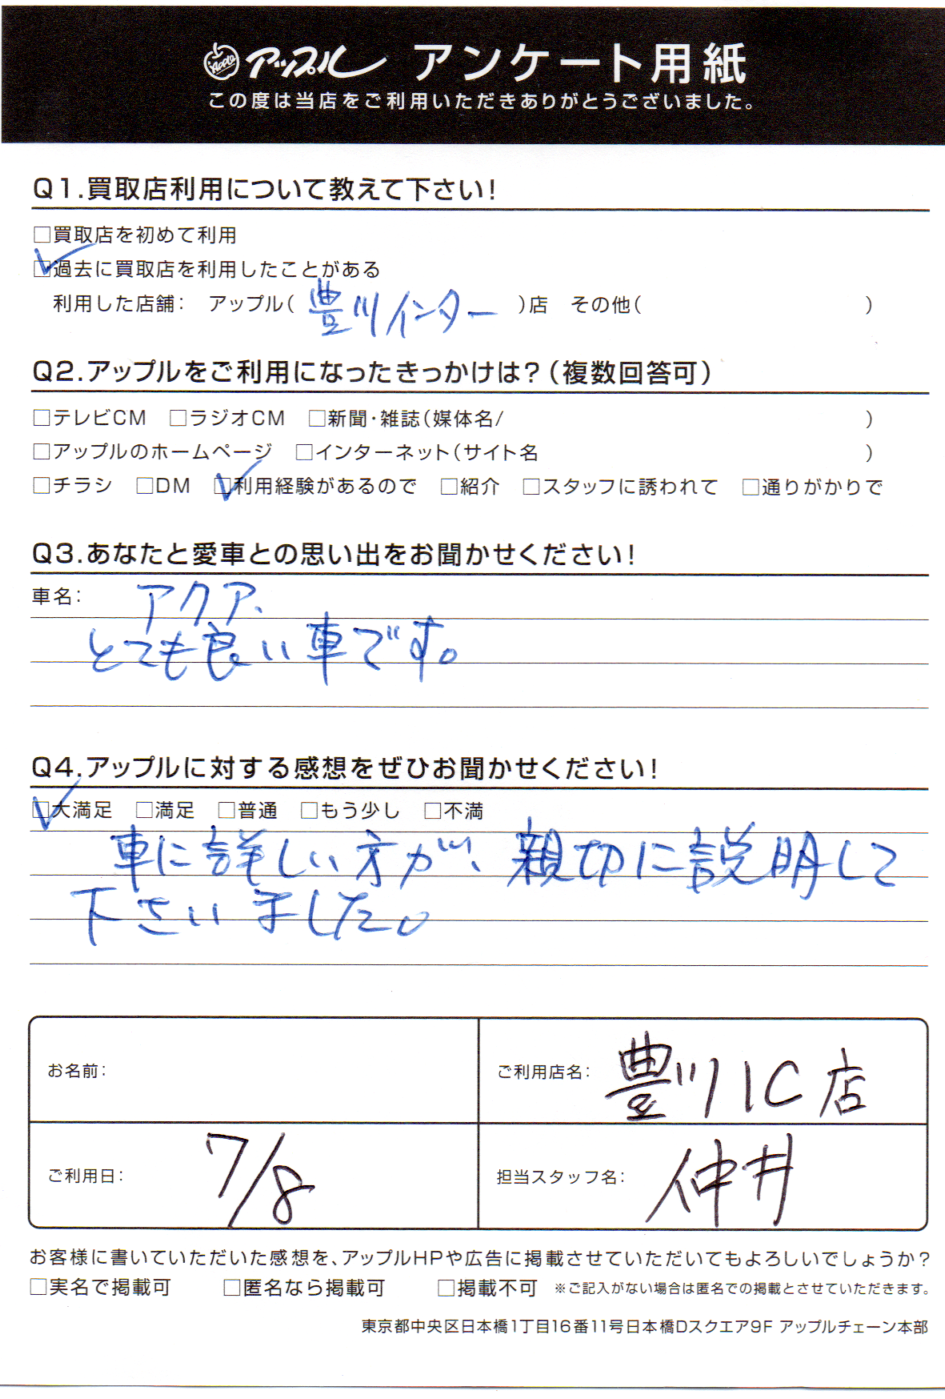 Apple アップル アンケート用紙
この度は当店をご利用いただきありがとうございました。
Q1.買取店利用について教えて下さい!
□買取店を初めて利用
☑過去に買取店を利用したことがある
利用した店舗： アップル(豊川インター)店 その他( )
Q2.アップルをご利用になったきっかけは?(複数回答可)
□テレビCM □ラジオCM □新聞・雑誌(媒体名/ )
□アップルのホームページ □インターネット(サイト名 )
□チラシ □DM ☑利用経験があるので □紹介 □スタッフに誘われて □通りがかりで
Q3.あなたと愛車との思い出をお聞かせください!
車名： アクア、
とても良い車です。
Q4.アップルに対する感想をぜひお聞かせください!
☑大満足 □満足 □普通 □もう少し □不満
車に詳しい方が、親切に説明して
下さいました。
お名前： ご利用店名： 豊川IC店
ご利用日： 7/8 担当スタッフ名： 仲井
お客様に書いていただいた感想を、アップルHPや広告に掲載させていただいてもよろしいでしょうか?
□実名で掲載可 □匿名なら掲載可 □掲載不可 ※ご記入がない場合は匿名での掲載とさせていただきます。
東京都中央区日本橋1丁目16番11号日本橋Dスクエア9F アップルチェーン本部